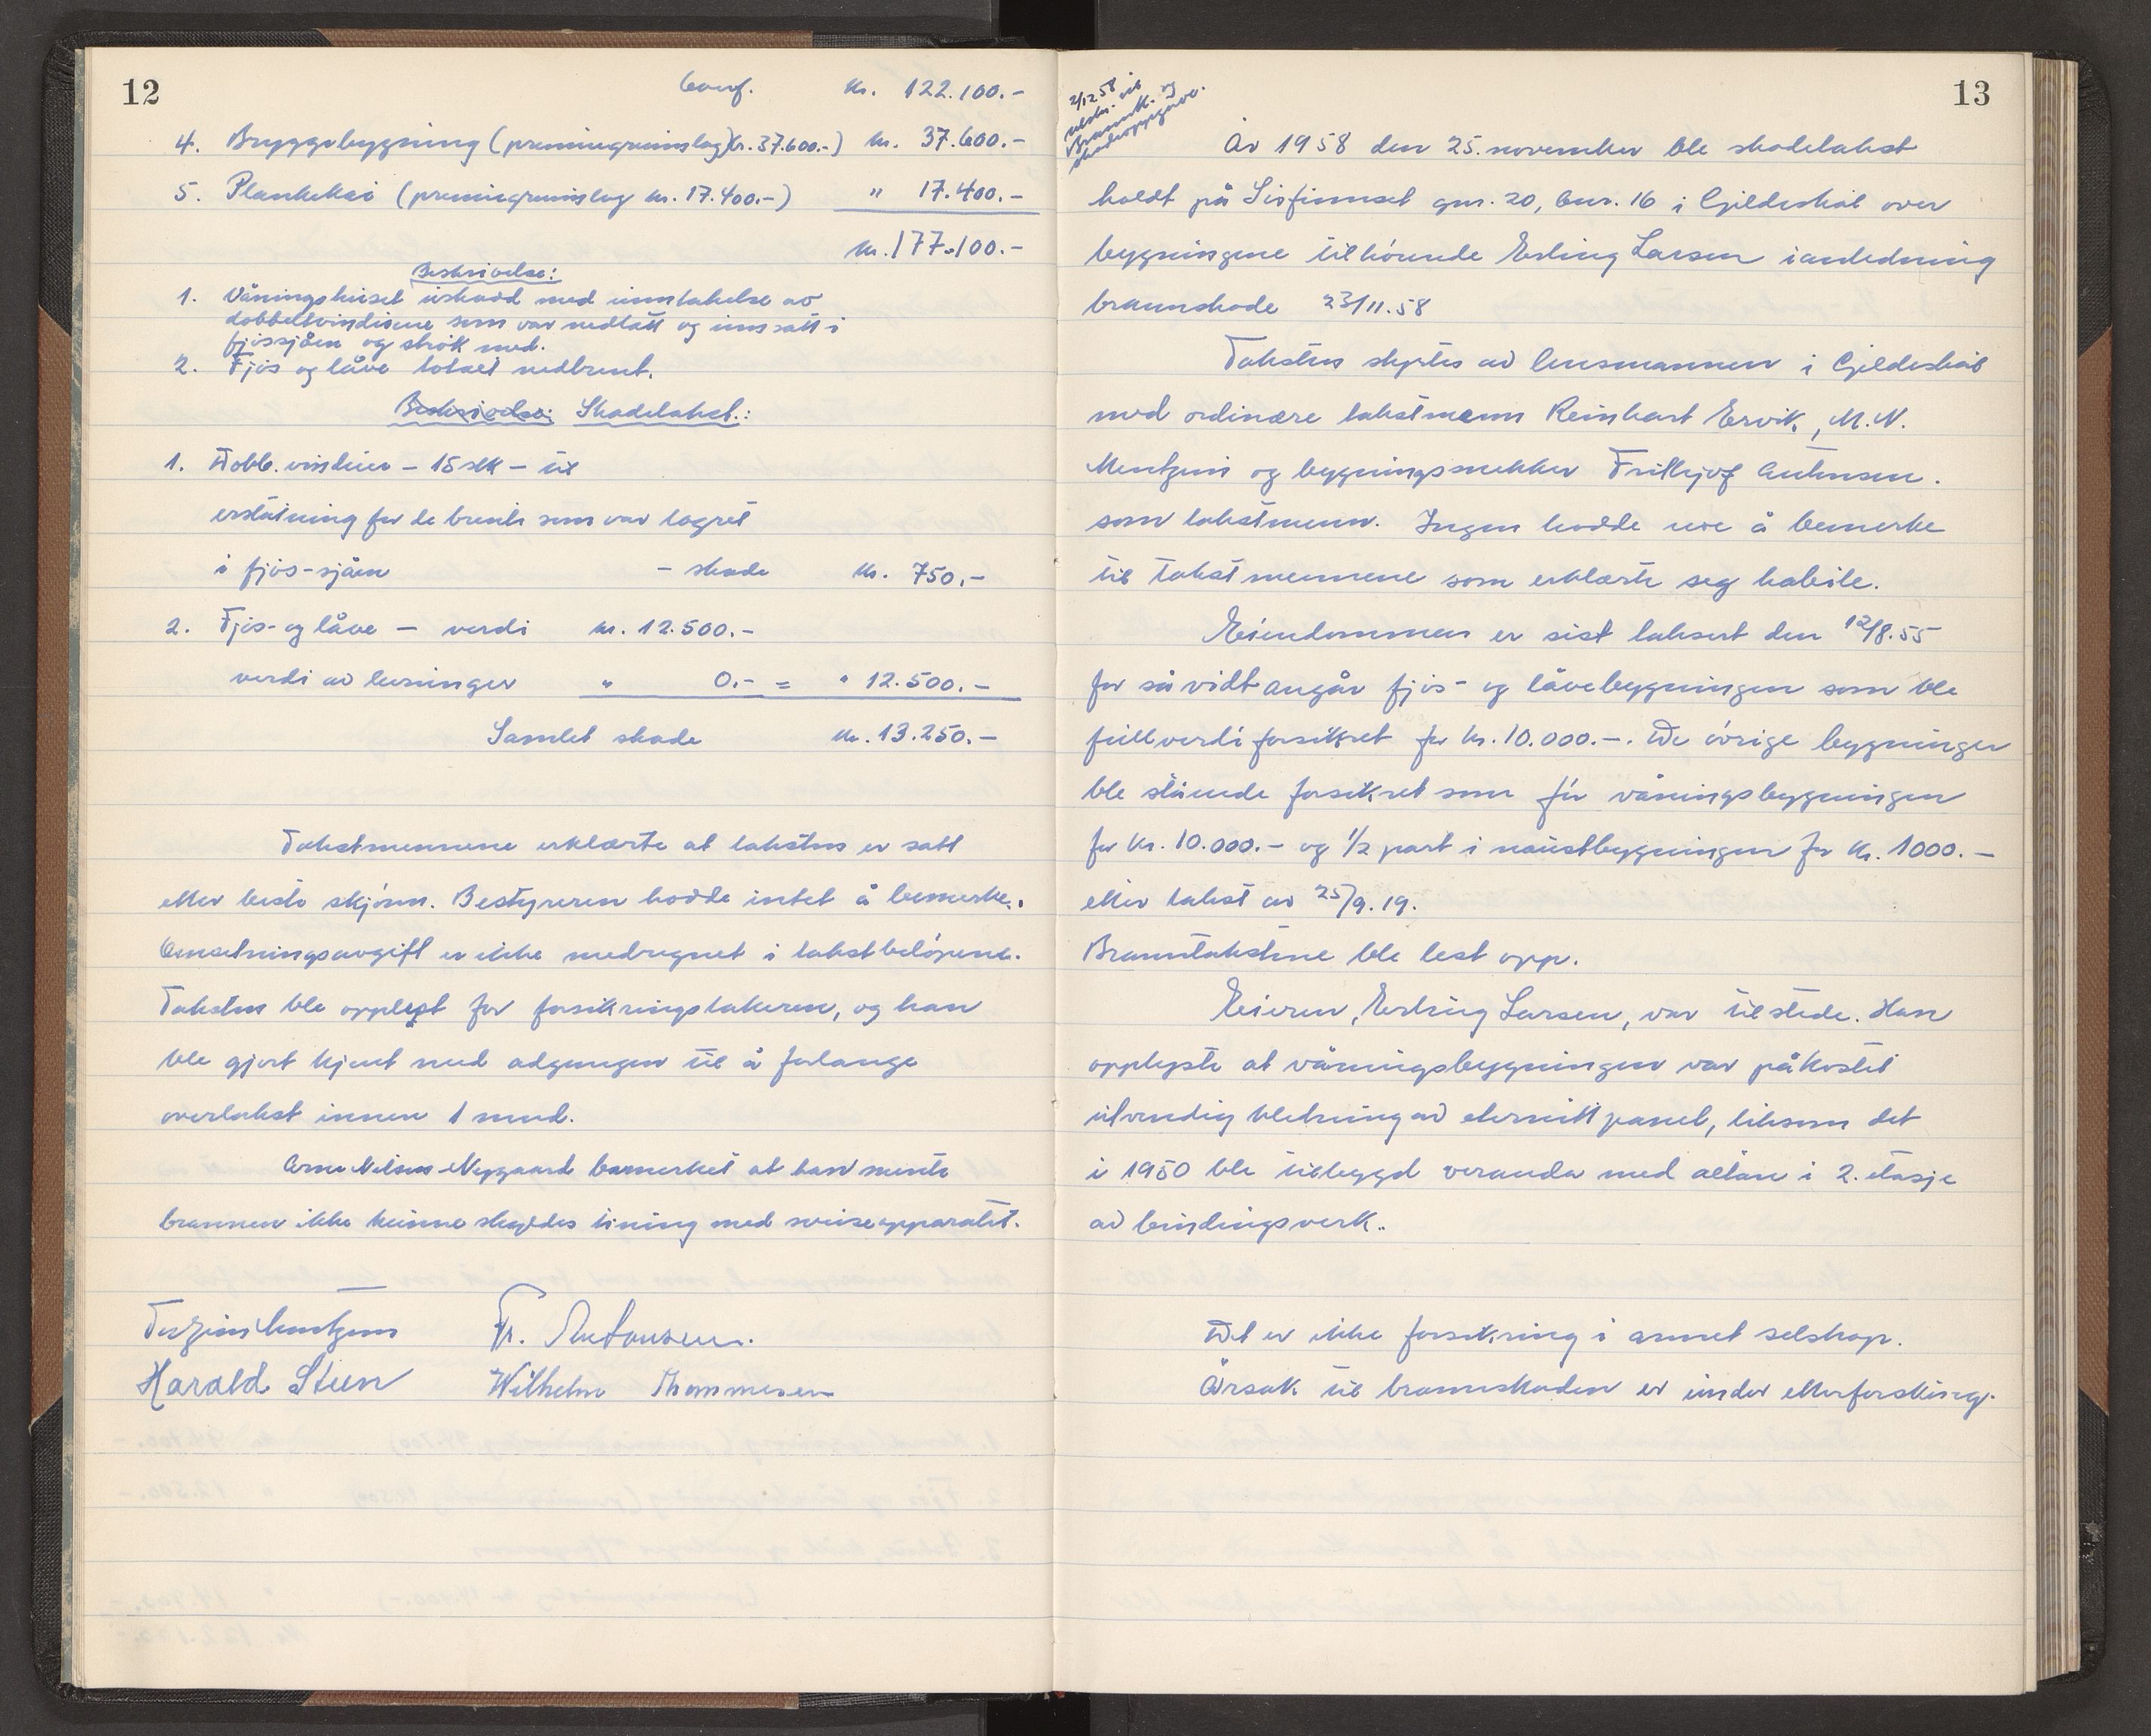 12
kr. 122.100.-
4. Bryggebygning (premiegrunnlag kr. 37.600.-) kr. 37.600.-
5. Plankekai (premiegrunnlag kr. 17.400.-) " 17.400.-
kr. 177.100.-
Beskrivelse:
1. Våningshuset uskadd med unntakelse av
dobbeltvinduene som var nedtatt og innsatt i
fjøssjåen og strøk med.
2. Fjøs og låve totalt nedbrent.
Beskrivelse: Skadetakst:
1. Dobb. vinduer - 15 stk - til
erstatning for de brente som var lagret
i fjøs-sjåen - skade kr. 750.-
2. Fjøs- og låve - verdi kr. 12.500.-
verdi av levninger " 0.- = " 12.500.-
Samlet skade kr. 13.250.-
Takstmennene erklærte at taksten er satt
etter beste skjønn. Bestyreren hadde intet å bemerke.
Omsetningsavgift er ikke medregnet i takstbeløpene.
Taksten ble opplest for forsikringstakeren, og han
ble gjort kjent med adgangen til å forlange
overtakst innen 1 mnd.
Arne Nilsen Nygaard bemerket at han mente
brannen ikke kunne skyldes tining med sveiseapparatet.
Fr. Antonsen.
Harald Steen Wilhelm Thommesen
13
2/12 58
utskr. til
Brannk. og
skadeoppgave.
År 1958 den 25. november ble skadetakst
holdt på Sisfinnset gnr. 20, bnr. 16 i Gjildeskål over
bygningene tilhørende Erling Larsen i anledning
brannskade 23/11.58
Taksten styrtes av lensmannen i Gjildeskål
med ordinære takstmenn Reinhart Ervik, M.N.
Mentzoni og bygningsmekker Frithjof Antonsen.
som takstmenn. Ingen hadde noe å bemerke
til takstmennene som erklærte seg habile.
Eiendommen er sist taksert den 12/8.55
for så vidt angår fjøs- og låvebygningen som ble
fullverdiforsikret for kr. 10.000.-. De øvrige bygninger
ble stående forsikret som før våningsbygningen
for kr. 10.000.- og 1/2 part i naustbygningen for kr. 1000.-
etter takst av 25/9.19.
Branntakstene ble lest opp.
Eieren, Erling Larsen, var tilstede. Han
opplyste at våningsbygningen var påkostet
utvendig kledning av eternittpanel, liksom det
i 1950 ble tilbygd veranda med altan i 2. etasje
av bindingsverk.
Det er ikke forsikring i annet selskap.
Årsak til brannskaden er under etterforsking.